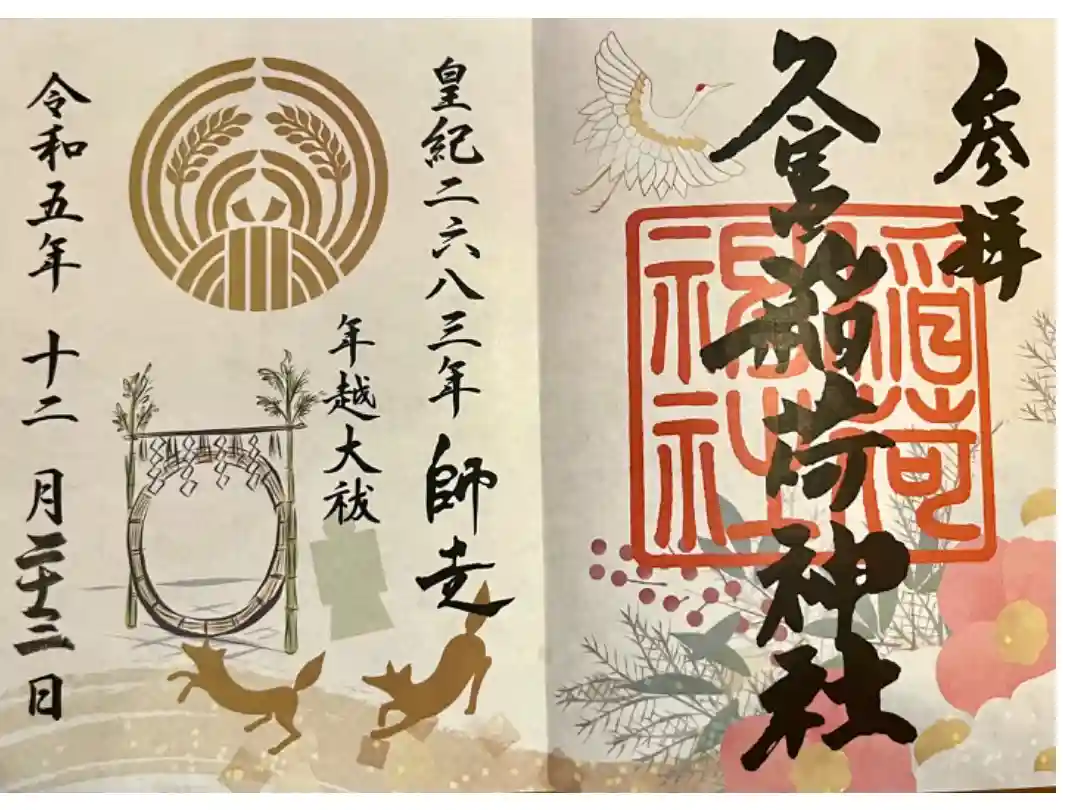 参拝
久富稲荷神社
稲荷
神社
皇紀二六八三年 師走
年越大祓
令和五年 十二月二十二日